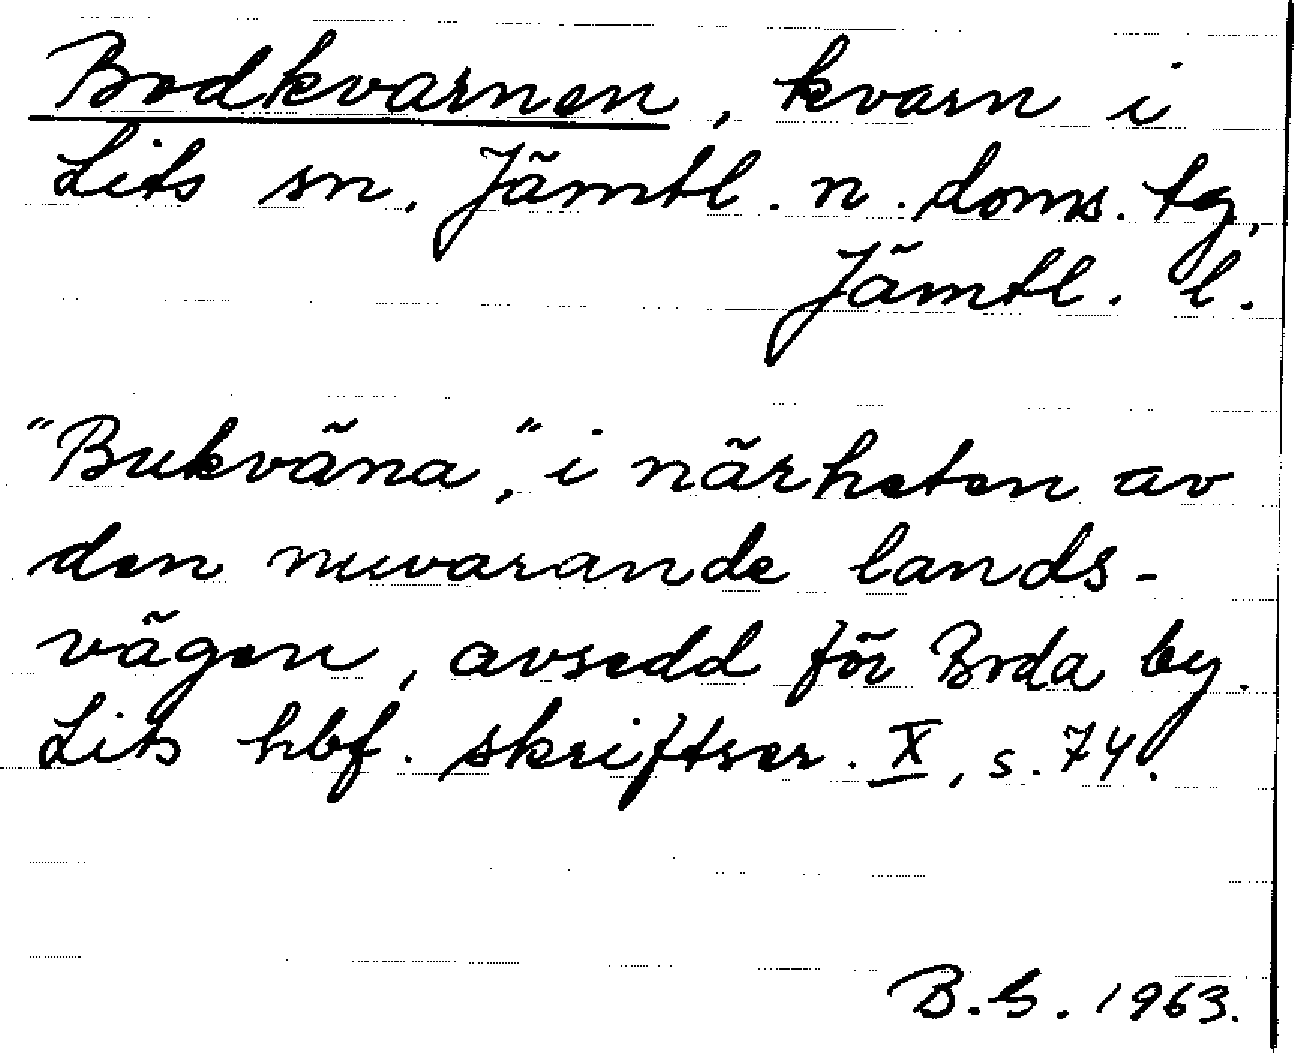 Bodkvarnen, kvarn i
Lits sn. Jämtl. n. doms. tg,
Jämtl. l.
"Bukväna," i närheten av
den nuvarande lands-
vägen, avsedd för Boda by.
Lits hbf. skriftser. X, s. 74.
B.G. 1963.